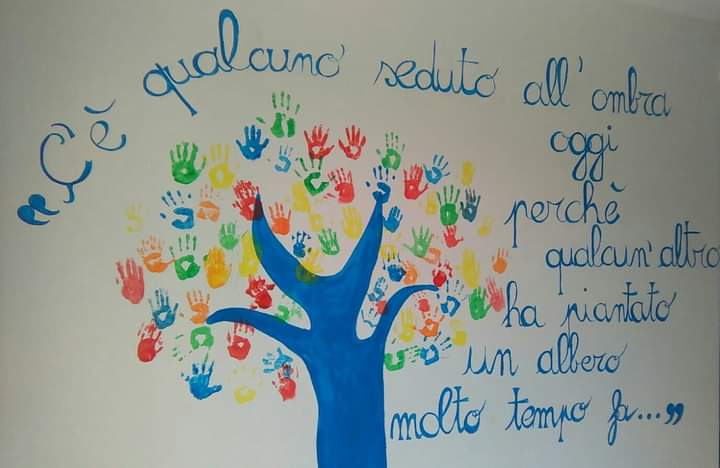 “C'è qualcuno seduto all'ombra
oggi
perchè
qualcun'altro
ha piantato
un albero
molto tempo fa...”